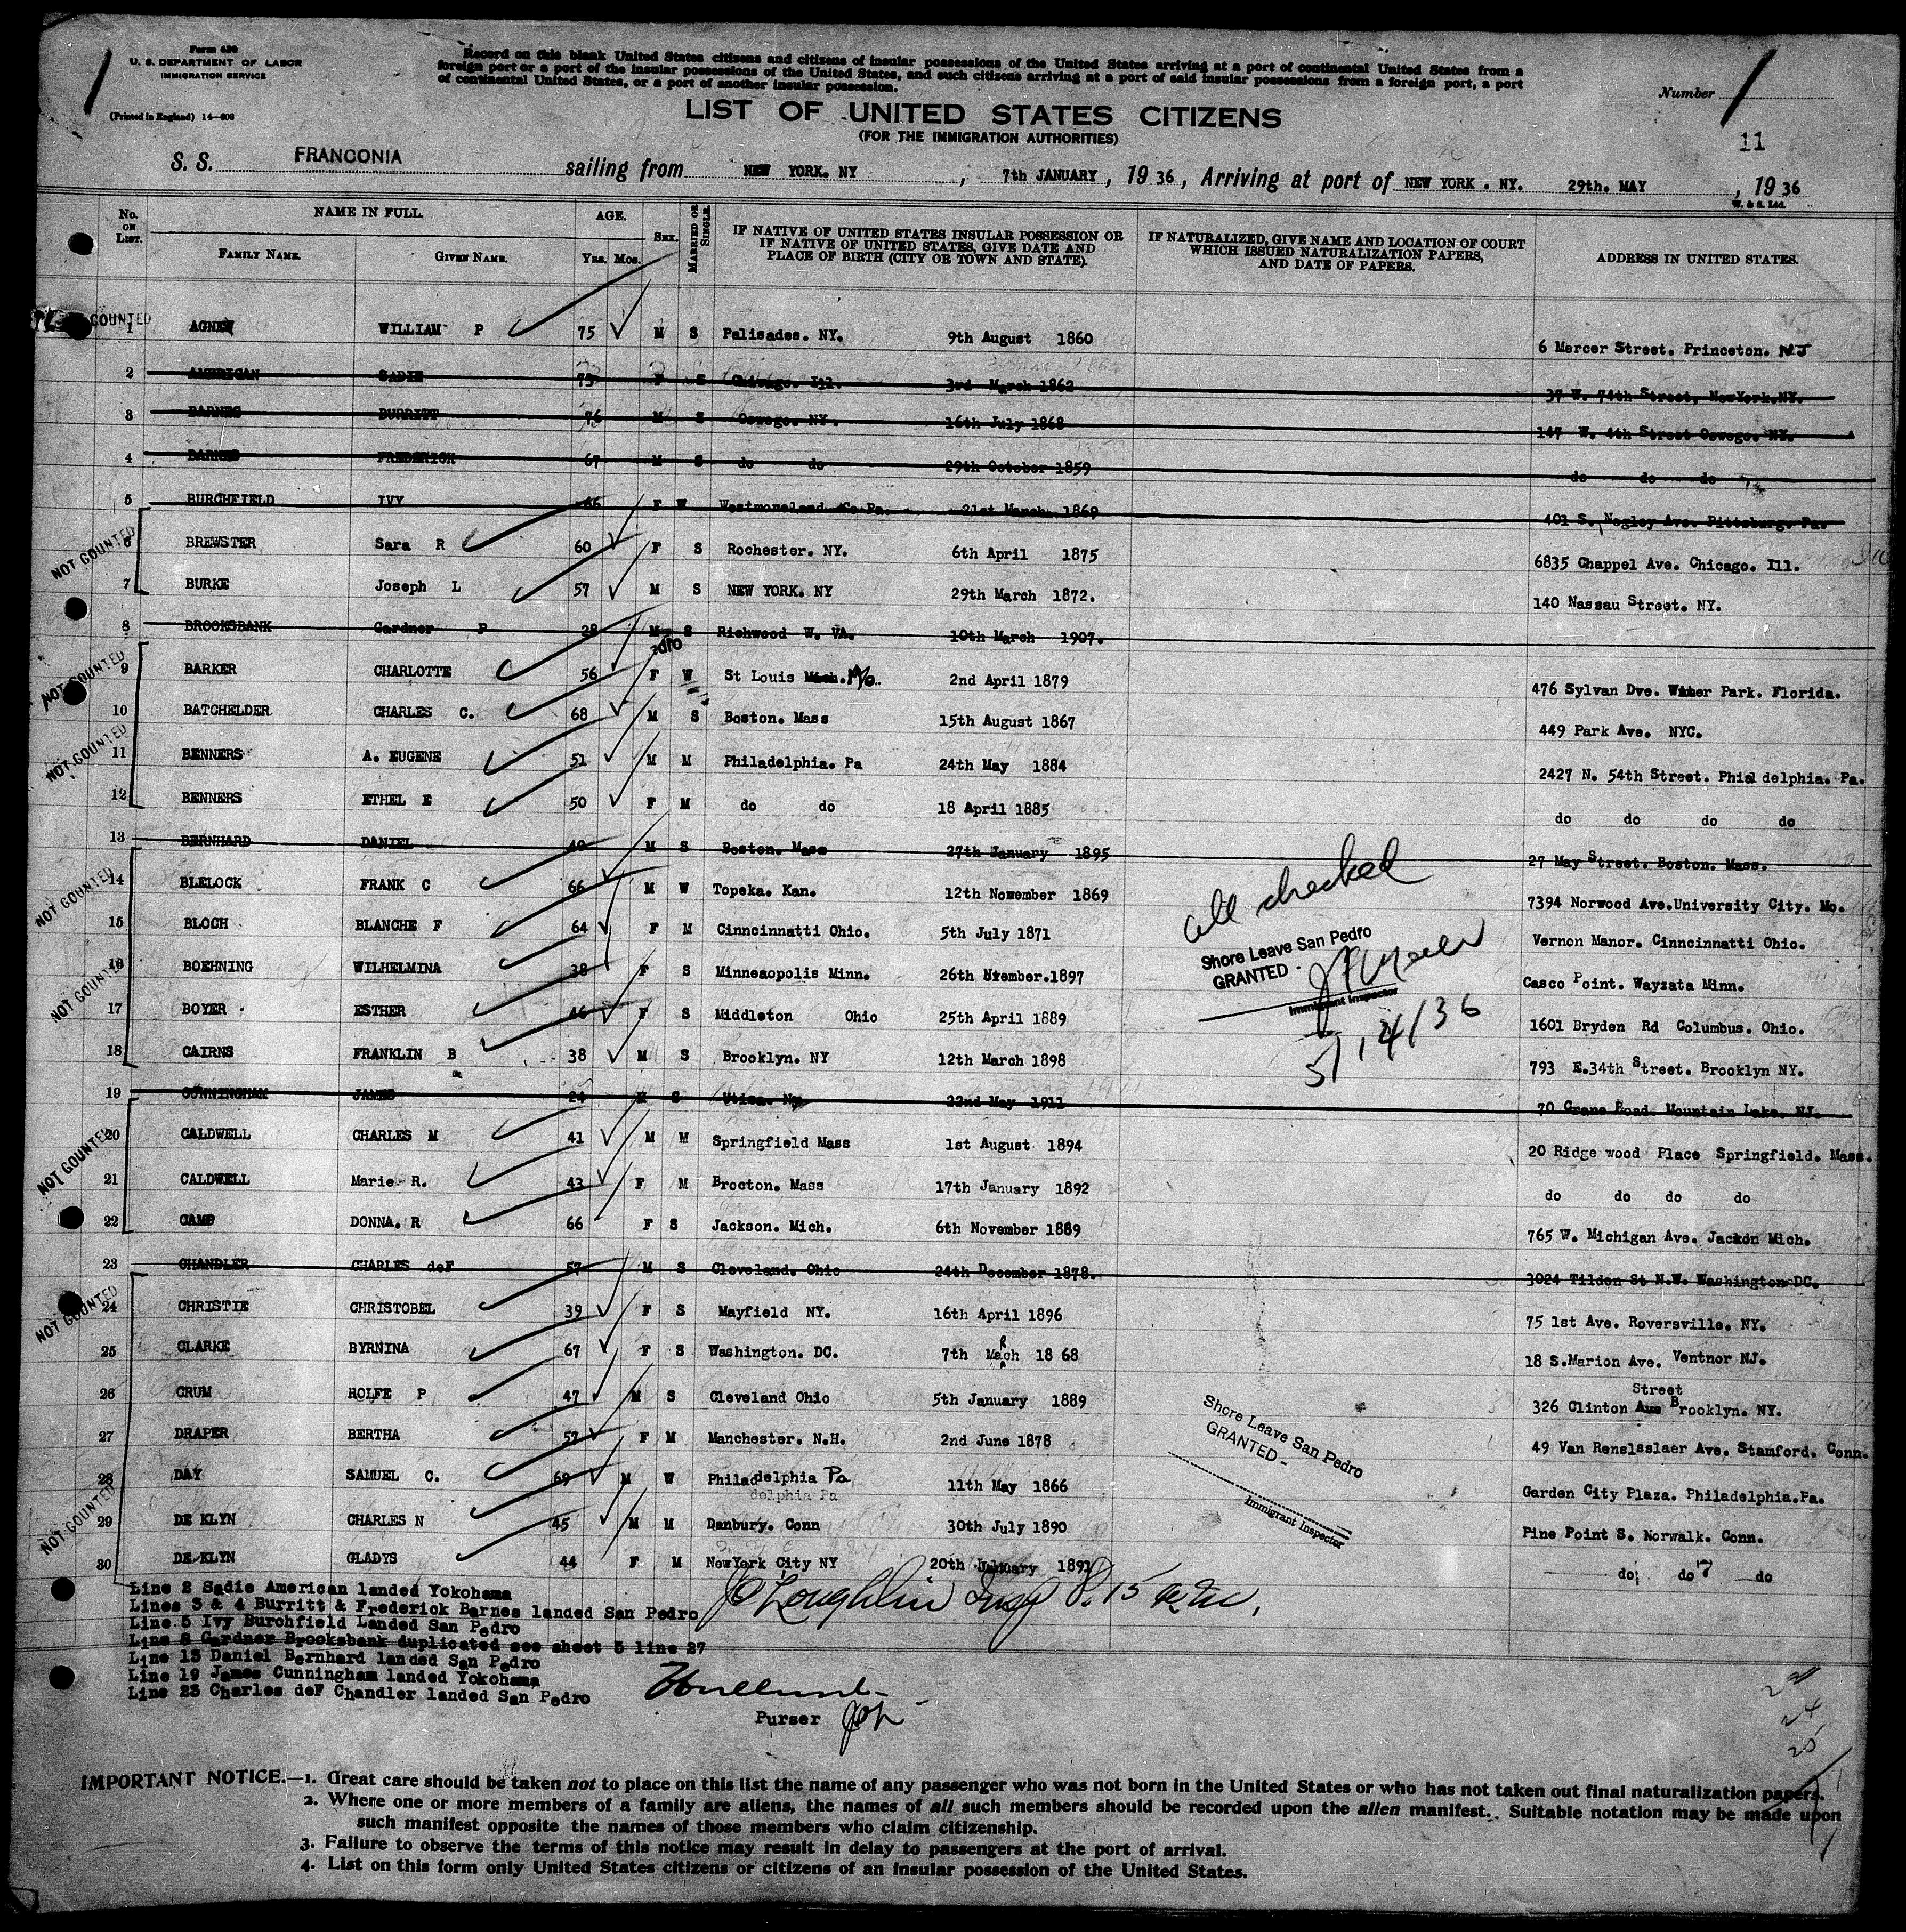 Form 630
U. S. DEPARTMENT OF LABOR
IMMIGRATION SERVICE
(Printed in England) 14—606
Record on this blank United States citizens and citizens of insular possessions of the United States arriving at a port of continental United States from a
foreign port or a port of the insular possessions of the United States, and such citizens arriving at a port of said insular possessions from a foreign port, a port
of continental United States, or a port of another insular possession.
Number
LIST OF UNITED STATES CITIZENS
(FOR THE IMMIGRATION AUTHORITIES)
11
S. S. FRANCONIA sailing from NEW YORK. NY , 7th JANUARY , 19 36 , Arriving at port of NEW YORK . NY. 29th. MAY , 19 36
W. & S. Ltd.
No. ON LIST. NAME IN FULL. AGE. SEX. MARRIED OR SINGLE. IF NATIVE OF UNITED STATES INSULAR POSSESSION OR IF NATIVE OF UNITED STATES, GIVE DATE AND PLACE OF BIRTH (CITY OR TOWN AND STATE). IF NATURALIZED, GIVE NAME AND LOCATION OF COURT WHICH ISSUED NATURALIZATION PAPERS, AND DATE OF PAPERS. ADDRESS IN UNITED STATES.
FAMILY NAME. GIVEN NAME. YRS. MOS.
COUNTED
1 AGNEW WILLIAM P 75 M S Palisades. NY. 9th August 1860 6 Mercer Street. Princeton. NJ
2 AMERICAN SADIE 73 F S Chicago. Ill. 3rd March 1862 37 W. 74th Street, NewYork.NY.
3 BARNES BURRITT 76 M S Oswego. NY. 16th July 1868 147 W. 4th Street Oswego. NY.
4 BARNES FREDERICK 67 M S do do 29th October 1859 do do do
5 BURCHFIELD IVY 66 F W Westmoreland Co Pa. 21st March 1869 401 S. Negley Ave. Pittsburg. Pa.
NOT COUNTED
6 BREWSTER Sara R 60 F S Rochester. NY. 6th April 1875 6835 Chappel Ave. Chicago. Ill.
7 BURKE Joseph L 57 M S NEW YORK. NY 29th March 1872. 140 Nassau Street. NY.
8 BROOKSBANK Gardner P 28 M S Richwood W. VA. 10th March 1907.
NOT COUNTED
9 BARKER CHARLOTTE 56 F W St Louis Mich. Mo. 2nd April 1879 476 Sylvan Dve. Winter Park. Florida.
10 BATCHELDER CHARLES C. 68 M S Boston. Mass 15th August 1867 449 Park Ave. NYC.
NOT COUNTED
11 BENNERS A. EUGENE 51 M M Philadelphia. Pa 24th May 1884 2427 N. 54th Street. Phialdelphia. Pa.
12 BENNERS ETHEL E 50 F M do do 18 April 1885 do do do do
13 BERNHARD DANIEL 40 M S Boston. Mass 27th January 1895 27 May Street. Boston. Mass.
NOT COUNTED
14 BLELOCK FRANK C 66 M W Topeka. Kan. 12th November 1869 7394 Norwood Ave.University City. Mo.
15 BLOCH BLANCHE F 64 F M Cinncinnatti Ohio. 5th July 1871 Vernon Manor. Cinncinnatti Ohio.
NOT COUNTED
16 BOEHNING WILHELMINA 38 F S Minneaopolis Minn. 26th .1897 Casco Point. Wayzata Minn.
17 BOYER ESTHER 46 F S Middleton Ohio 25th April 1889 1601 Bryden Rd Columbus. Ohio.
18 CAIRNS FRANKLIN B 38 M S Brooklyn. NY 12th March 1898 793 E.34th Street. Brooklyn NY.
19 CUNNINGHAM JAMES 24 M S Utica. Ny 22nd May 1911 70 Crane Road. Mountain Lake. NJ.
NOT COUNTED
20 CALDWELL CHARLES M 41 M M Springfield Mass 1st August 1894 20 Ridge wood Place Springfield. Mass.
21 CALDWELL Marie R. 43 F M Brocton. Mass 17th January 1892 do do do do
22 CAMP DONNA. R 66 F S Jackson. Mich. 6th November 1869 765 W. Michigan Ave. Jackon Mich.
23 CHANDLER CHARLES deF 57 M S Cleveland. Ohio 24th December 1878. 3024 Tilden St N.W. Washington DC.
NOT COUNTED
24 CHRISTIE CHRISTOBEL 39 F S Mayfield NY. 16th April 1896 75 1st Ave. Roversville. NY.
25 CLARKE BYRNINA 67 F S Washington. DC. 7th MaRch 18 68 18 S.Marion Ave. Ventnor NJ.
26 CRUM ROLFE P 47 M S Cleveland Ohio 5th January 1889 326 Clinton Ave Street Brooklyn. NY.
27 DRAPER BERTHA 57 F M Manchester. N.H. 2nd June 1878 49 Van Renslsslaer Ave. Stamford. Conn.
28 DAY SAMUEL C. 69 M W Philadelphia Pa 11th May 1866 Garden City Plaza. Philadelphia.Pa.
delphia Pa
NOT COUNTED
29 DE KLYN CHARLES N 45 M M Danbury. Conn 30th July 1890 Pine Point S. Norwalk. Conn.
30 DE KLYN GLADYS 44 F M NewYork City NY 20th January 1891 do do do
all checked
Shore Leave San Pedro
GRANTED -
Immigrant Inspector
5/14/36
Shore Leave San Pedro
GRANTED -
Immigrant Inspector
Line 2 Sadie American landed Yokohama
Lines 3 & 4 Burritt & Frederick Barnes landed San Pedro
Line 5 Ivy Burchfield Landed San Pedro
Line 8 Gardner Brooksbank duplicated see sheet 5 line 27
Line 13 Daniel Bernhard landed San Pedro
Line 19 James Cunningham landed Yokohama
Line 23 Charles deF Chandler landed San Pedro
Purser
IMPORTANT NOTICE.—1. Great care should be taken not to place on this list the name of any passenger who was not born in the United States or who has not taken out final naturalization papers.
2. Where one or more members of a family are aliens, the names of all such members should be recorded upon the alien manifest. Suitable notation may be made upon
such manifest opposite the names of those members who claim citizenship.
3. Failure to observe the terms of this notice may result in delay to passengers at the port of arrival.
4. List on this form only United States citizens or citizens of an insular possession of the United States.